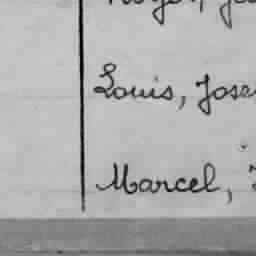 Louis, Jose
Marcel,